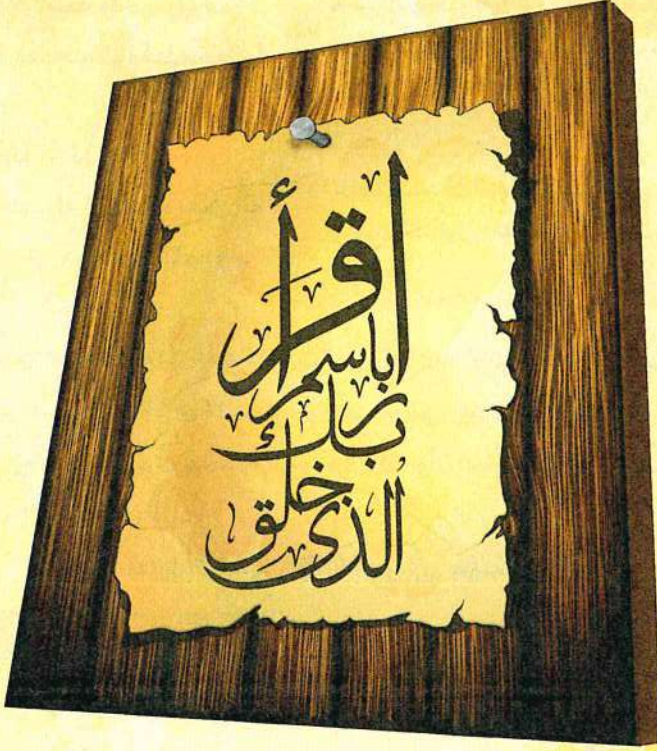 اقرأ
باسم
ربك
الذى خلق